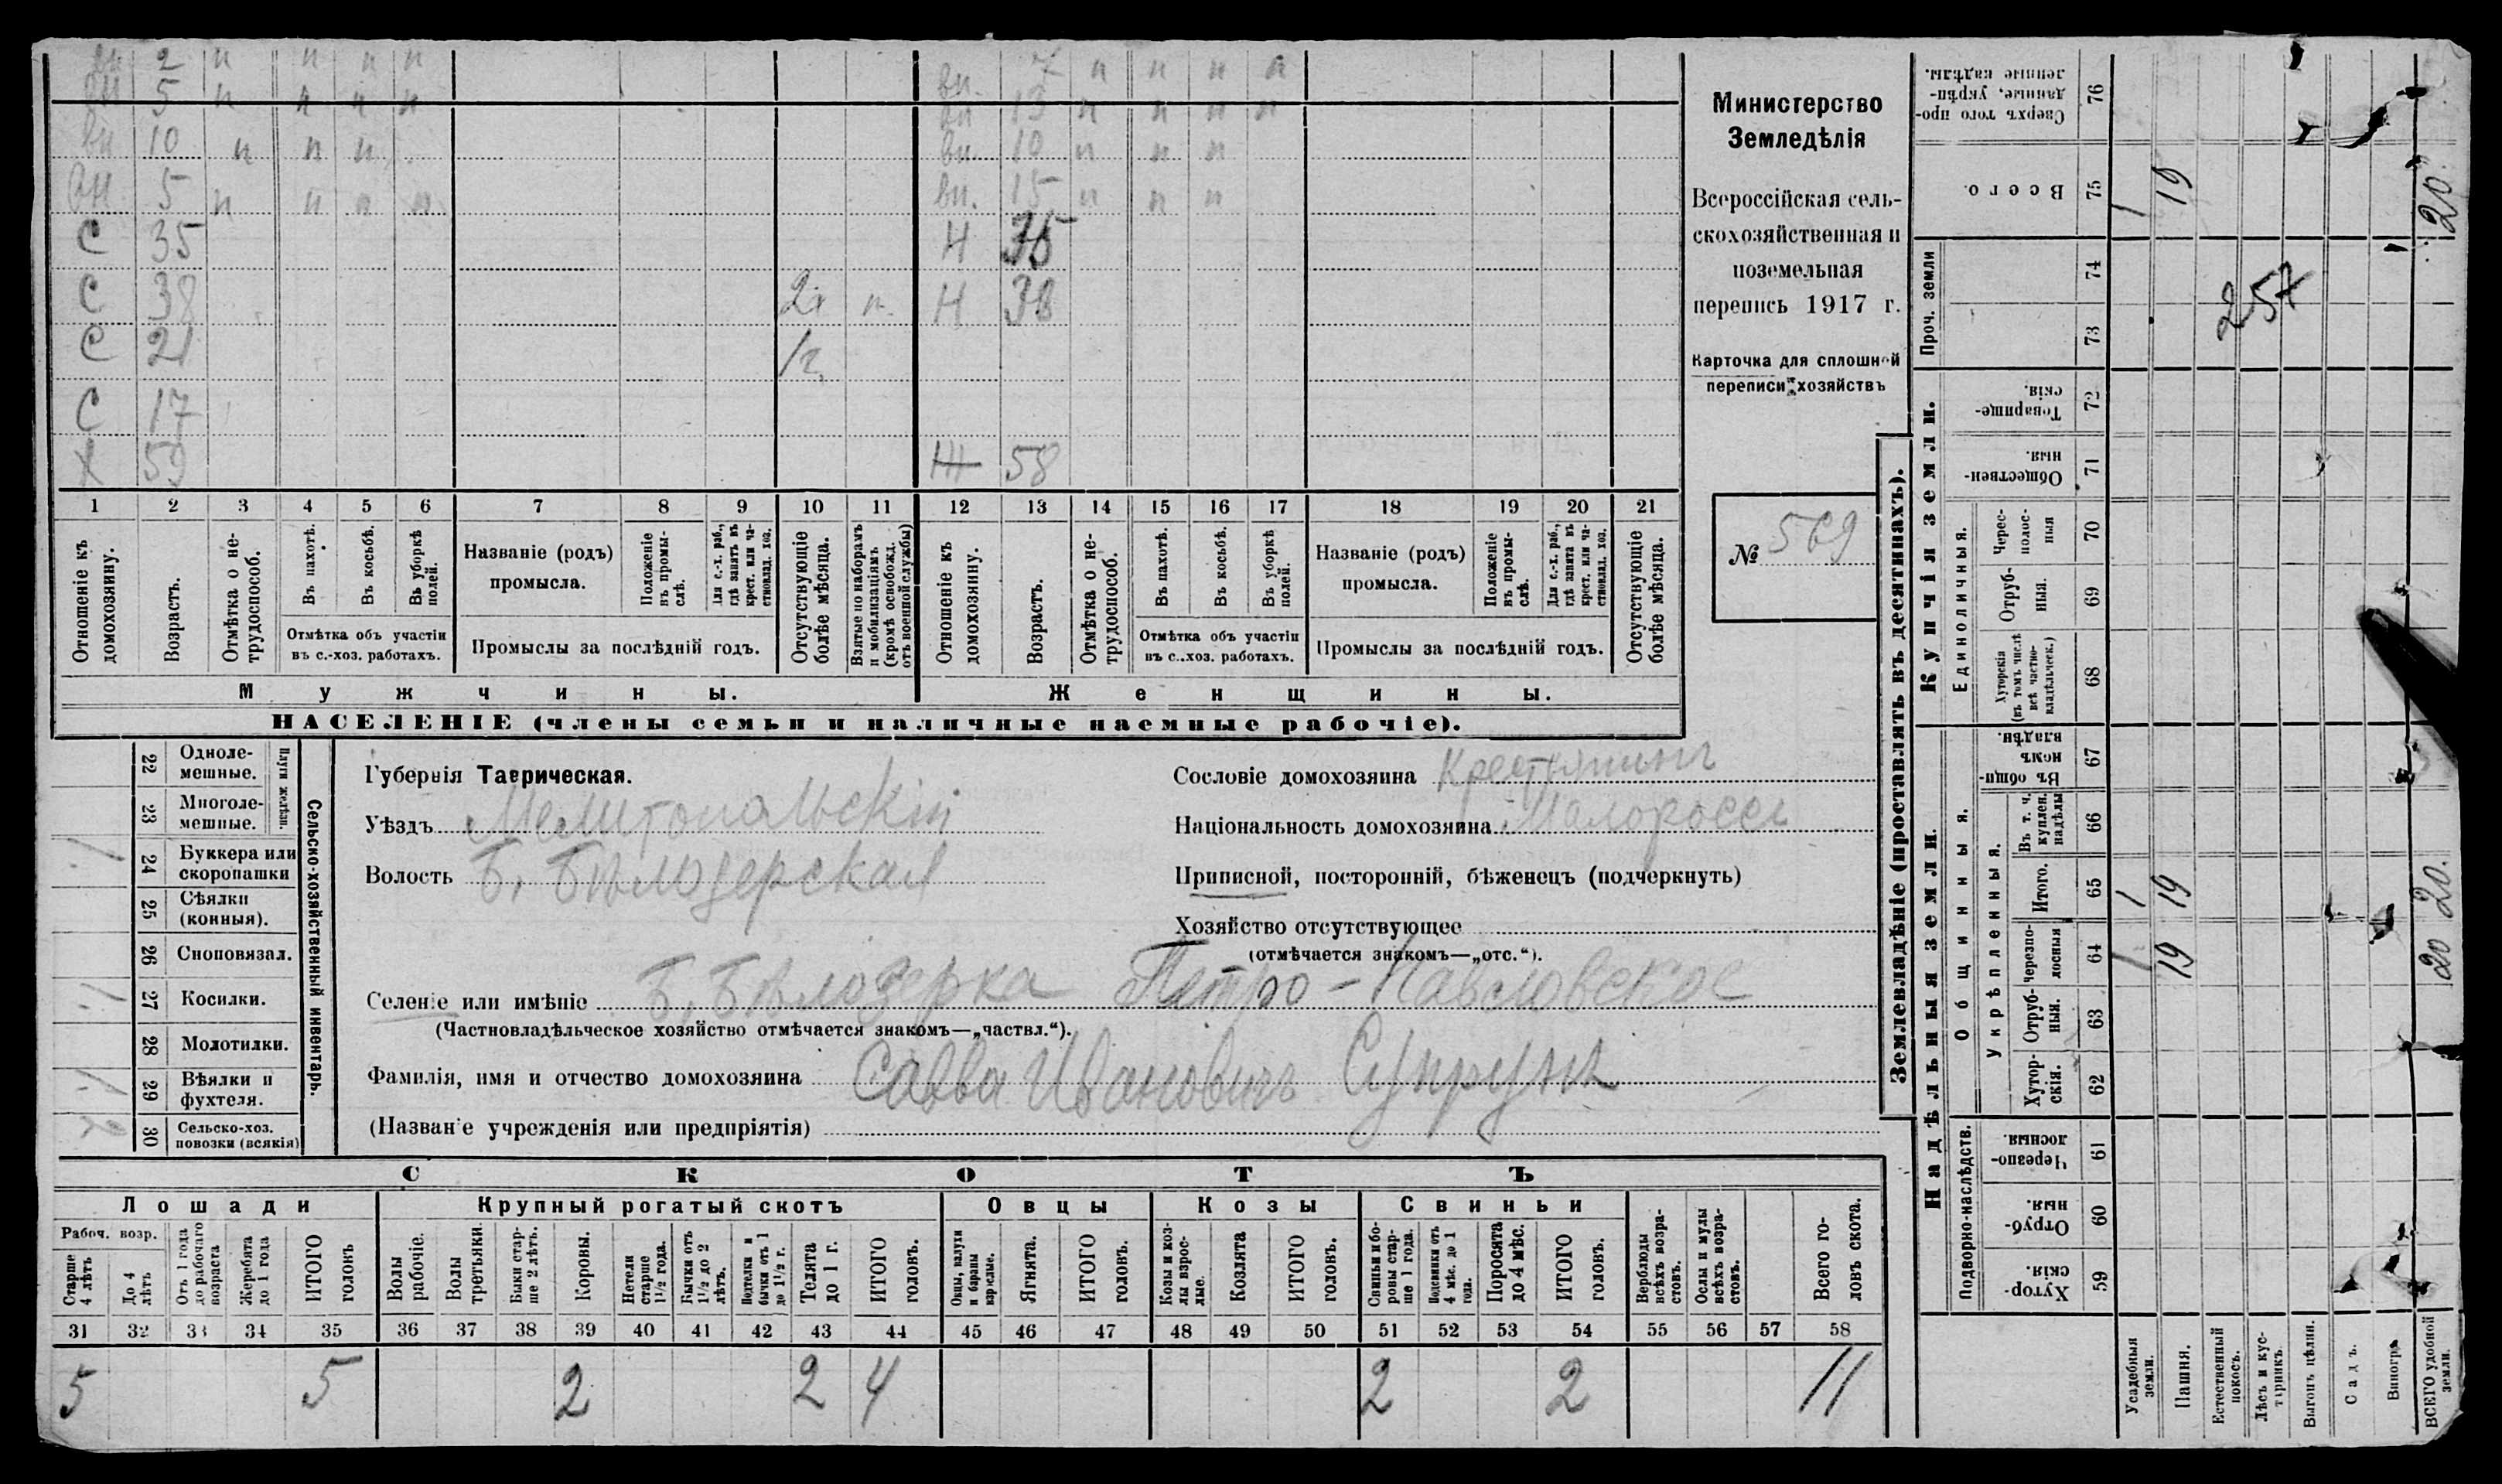 вн 2 н н н н вн. 7 н н н н
вн 5 н н н н вн 13 н н н н
вн 10 н н н вн. 10 н н н
вн. 5 н н н н вн. 15 н н н
С 35 Н 35
С 38 Н 38
С 21
С 17
Х 59 Ж 58
1 2 3 4 5 6 7 8 9 10 11 12 13 14 15 16 17 18 19 20 21
Отношеніе къ домохозяину.
Возрастъ.
Отмѣтка о не-
трудоспособ.
Въ пахотѣ.
Въ косьбѣ.
Въ уборкѣ полей.
Отмѣтка объ участіи
въ с.-хоз. работахъ.
Названіе (родъ)
промысла.
Положеніе въ промы-
слѣ.
Для с.-х. раб., гдѣ занятъ въ крест. или ча-
стновлад. хоз.
Промыслы за послѣдній годъ.
Отсутствующіе болѣе мѣсяца.
Взятые по наборамъ и мобилизаціямъ (кромѣ освобожд. отъ военной службы)
Отношеніе къ домохозяину.
Возрастъ.
Отмѣтка о не-
трудоспособ.
Въ пахотѣ.
Въ косьбѣ.
Въ уборкѣ полей.
Отмѣтка объ участіи
въ с..хоз. работахъ.
Названіе (родъ)
промысла.
Положеніе въ промы-
слѣ.
Для с.-х. раб., гдѣ занята въ крест. или ча-
стновлад. хоз.
Промыслы за послѣдній годъ.
Отсутствующіе болѣе мѣсяца.
Мужчины.
Женщины.
НАСЕЛЕНІЕ (члены семьи и наличные наемные рабочіе).
Министерство
Земледѣлія
Всероссійская сель-
скохозяйственная и
поземельная
перепись 1917 г.
Карточка для сплошной
переписи хозяйствъ
№ 569
22 Одноле-
мешные.
23 Многоле-
мешные.
Плуги желѣзн.
24 Буккера или
скоропашки
25 Сѣялки
(конныя).
26 Сноповязал.
27 Косилки.
28 Молотилки.
29 Вѣялки и
фухтеля.
30 Сельско-хоз.
повозки (всякія)
Сельско-хозяйственный инвентарь.
Губернія Таврическая.
Уѣздъ Мелитопольскій
Волость Б. Бѣлозерская
Сословіе домохозяина Крестьянинъ
Національность домохозяина Малороссъ
Приписной, посторонній, бѣженецъ (подчеркнуть)
Хозяйство отсутствующее
(отмѣчается знакомъ—„отс.“).
Селеніе или имѣніе Б. Бѣлозерка Петро-Павловское
(Частновладѣльческое хозяйство отмѣчается знакомъ—„частвл.“).
Фамилія, имя и отчество домохозяина Савва Ивановичъ Супрунъ
(Названіе учрежденія или предпріятія)
СКОТЪ
Лошади Крупный рогатый скотъ Овцы Козы Свиньи
Рабоч. возр.
Старше 4 лѣтъ
До 4 лѣтъ
Отъ 1 года до рабочаго возраста
Жеребята до 1 года
ИТОГО головъ
Волы рабочіе.
Волы третьяки.
Быки стар-
ше 2 лѣтъ.
Коровы.
Нетели старше 1½ года.
Бычки отъ 1½ до 2 лѣтъ.
Подтелки и бычки отъ 1 до 1½ г.
Телята до 1 г.
ИТОГО головъ.
Овцы, валухи и бараны взрослые.
Ягнята.
ИТОГО головъ.
Козы и коз-
лы взрос-
лые.
Козлята
ИТОГО головъ.
Свиньи и бо-
ровы стар-
ше 1 года.
Подсвинки отъ 4 мѣс. до 1 года.
Поросята до 4 мѣс.
ИТОГО головъ.
Верблюды всѣхъ возра-
стовъ.
Ослы и мулы всѣхъ возра-
стовъ.
Всего го-
ловъ скота.
31 32 33 34 35 36 37 38 39 40 41 42 43 44 45 46 47 48 49 50 51 52 53 54 55 56 57 58
5 5 2 2 4 2 2 11
Землевладѣніе (проставлять въ десятинахъ).
Надѣльныя земли.
Купчія земли.
Проч. земли
Подворно-наслѣдств.
Общинныя.
Укрѣпленныя.
Единоличныя.
Хутор-
скія. 59
Отруб-
ныя. 60
Черезпо-
лосныя. 61
Хутор-
скія. 62
Отруб-
ныя. 63
Черезпо-
лосныя 64
Итого. 65
Въ т. ч. куплен. надѣлы 66
Въ общи-
номъ владѣн. 67
Хуторскія (въ томъ числѣ всѣ частно-
владѣльческ.) 68
Отруб-
ныя. 69
Черес-
полос-
ныя 70
Обществен-
ныя. 71
Товарище-
скія. 72
73
74
Всего. 75
Сверхъ того про-
данные, укрѣп-
ленные надѣлы. 76
Усадебныя земли. 1 1 1
Пашня. 19 19 19
Естественный покосъ.
Лѣсъ и кус-
тарникъ.
Выгонъ цѣлин.
Садъ.
Виногр
ВСЕГО удобной земли. 20 20. 20.
257